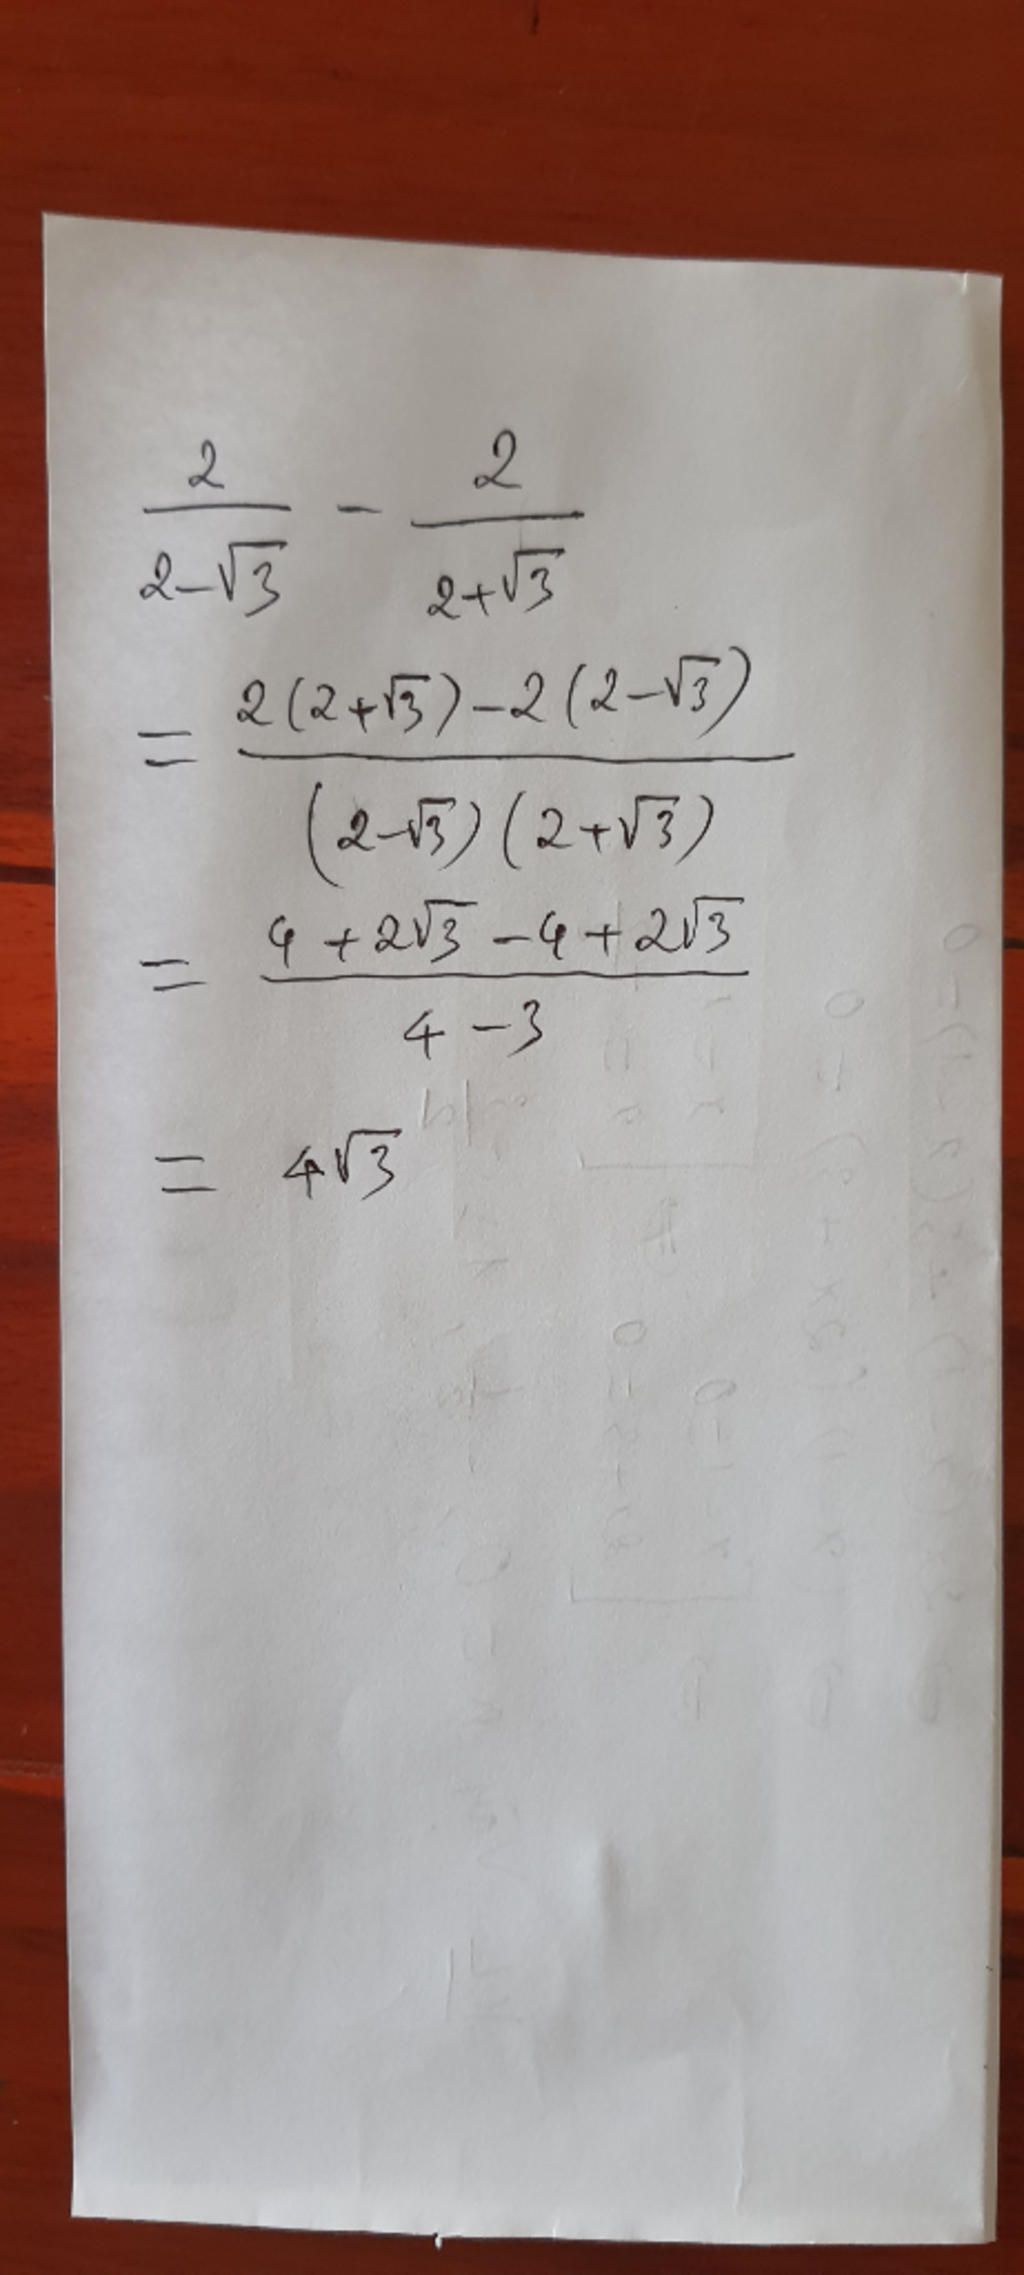 2/(2-√3) - 2/(2+√3)
= (2(2+√3)-2(2-√3))/((2-√3)(2+√3))
= (4+2√3-4+2√3)/(4-3)
= 4√3